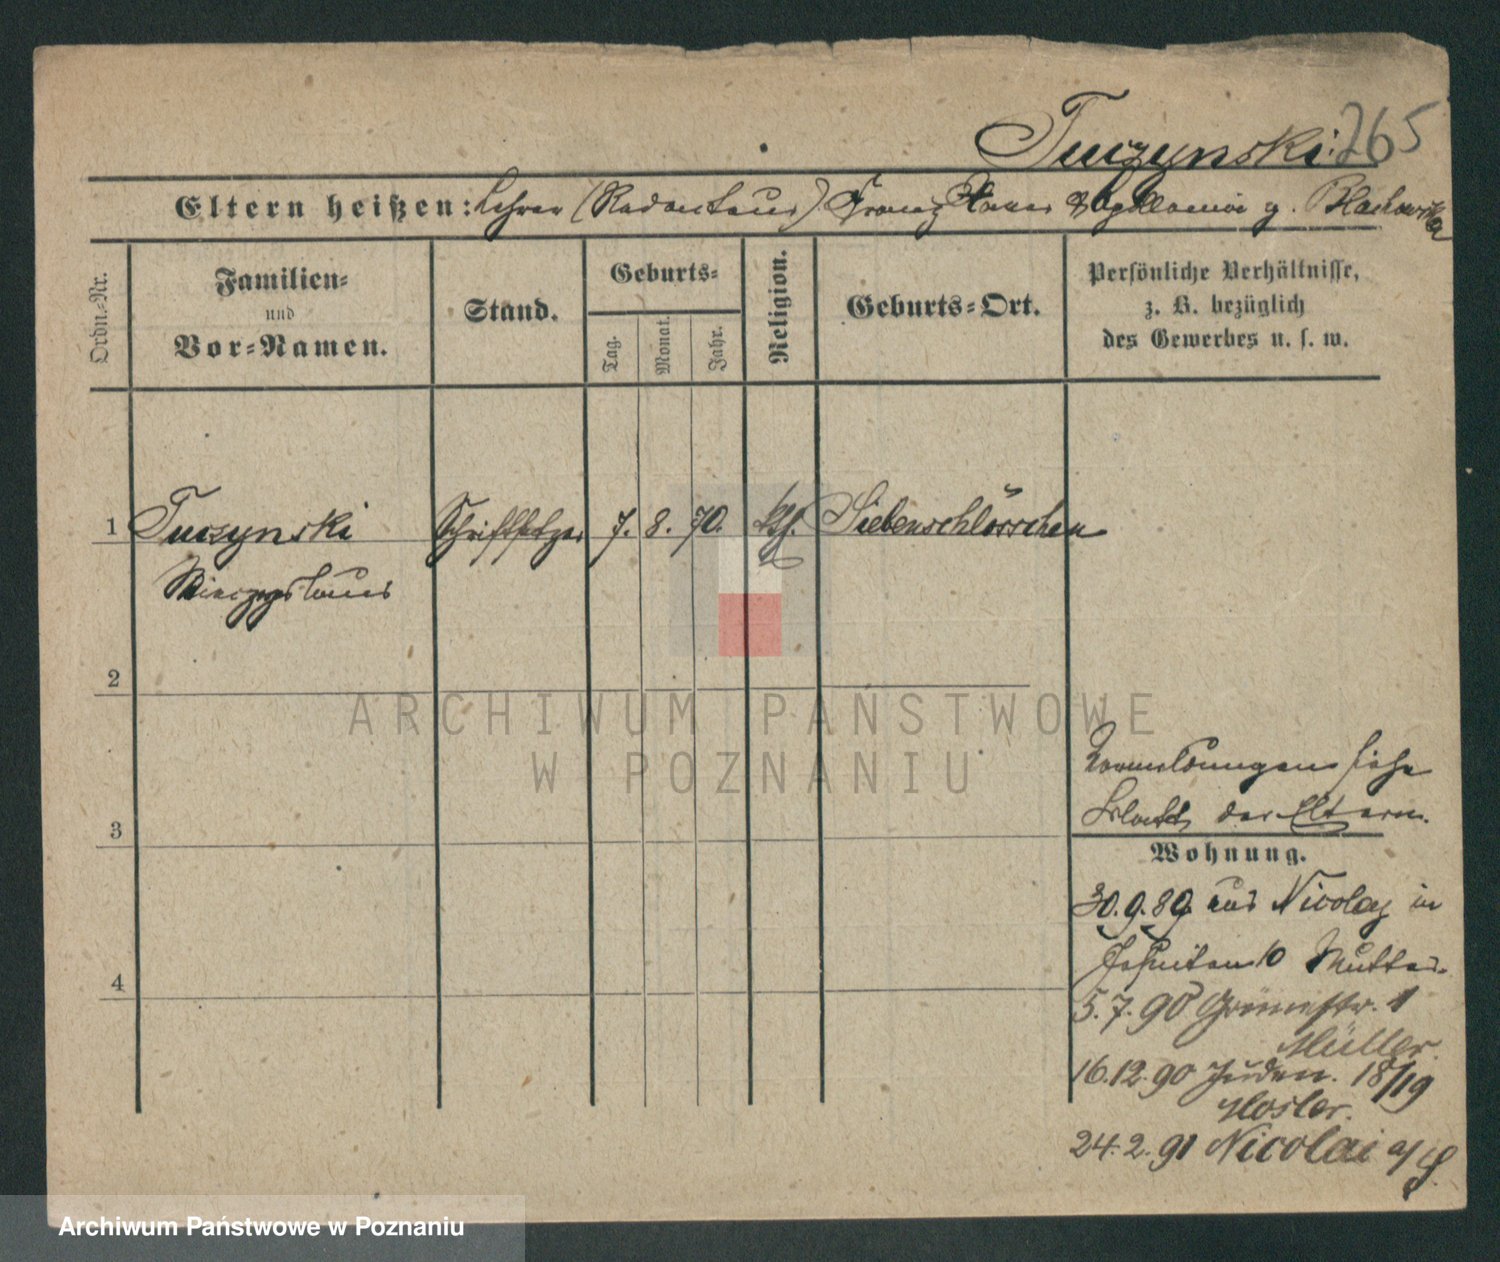 Tuczynski. 265
Eltern heißen: Lehrer (Redakteur) Franz Xaver & Apollonia g. Blachowska
Ordn.-Nr.
Familien-
und
Vor-Namen.
Stand.
Geburts-
Tag.
Monat.
Jahr.
Religion.
Geburts-Ort.
Persönliche Verhältnisse,
z. B. bezüglich
des Gewerbes u. s. w.
1 Tuczynski Schriftsetzer 7. 8. 70. kth. Siebenschlösschen
Mieczyslaus
2
ARCHIWUM PAŃSTWOWE
W POZNANIU
Vormeldungen siehe
Blatt der Eltern.
3
Wohnung.
30.9.89 aus Nicolay in
Jesuiten 10 Mutter.
4
5.7.90 Grünestr. 1
Müller.
16.12.90 Juden. 18/19
Hosler.
24.2.91 Nicolai a/S.
Archiwum Państwowe w Poznaniu